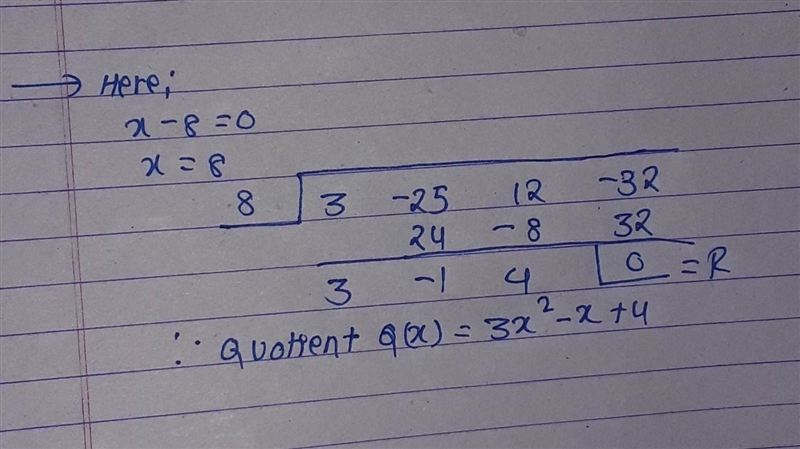 → Here;
x - 8 = 0
x = 8
8 3 -25 12 -32
24 -8 32
3 -1 4 0 = R
∵ Quotient Q(x) = 3x² - x + 4